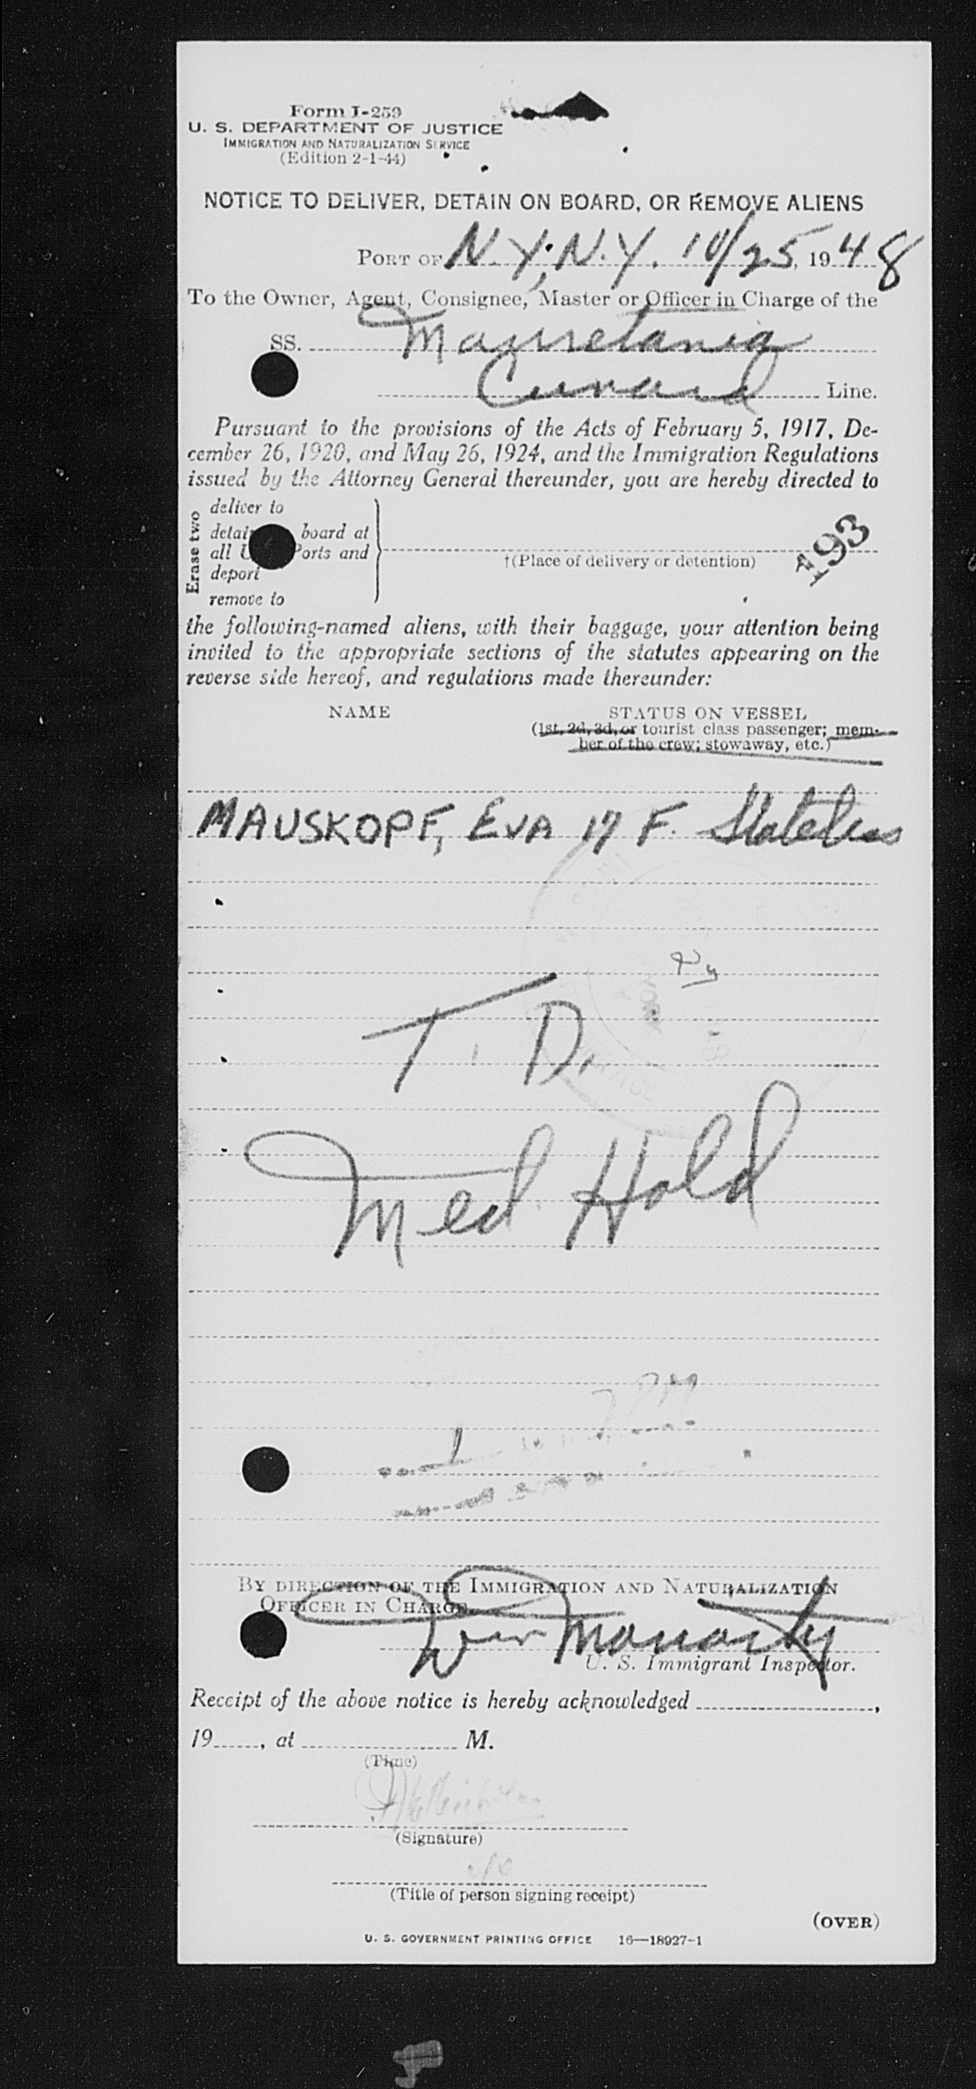 Form I-259
U. S. DEPARTMENT OF JUSTICE
IMMIGRATION AND NATURALIZATION SERVICE
(Edition 2-1-44)
NOTICE TO DELIVER, DETAIN ON BOARD, OR REMOVE ALIENS
PORT OF N.Y., N.Y. 10/25, 1948
To the Owner, Agent, Consignee, Master or Officer in Charge of the
SS. Mauretania
Cunard Line.
Pursuant to the provisions of the Acts of February 5, 1917, De-
cember 26, 1920, and May 26, 1924, and the Immigration Regulations
issued by the Attorney General thereunder, you are hereby directed to
Erase two
deliver to
board at
all Ports and
deport
remove to
†(Place of delivery or detention)
193
the following-named aliens, with their baggage, your attention being
invited to the appropriate sections of the statutes appearing on the
reverse side hereof, and regulations made thereunder:
NAME STATUS ON VESSEL
(1st, 2d, 3d, or tourist class passenger; mem-
ber of the crew; stowaway, etc.)
MAUSKOPF, EVA 17 F. Stateless
T. D.
Med. Hold
BY DIRECTION OF THE IMMIGRATION AND NATURALIZATION
OFFICER IN CHARGE
U. S. Immigrant Inspector.
Receipt of the above notice is hereby acknowledged ,
19 , at M.
(Time)
(Signature)
(Title of person signing receipt)
(OVER)
U. S. GOVERNMENT PRINTING OFFICE 16—18927-1